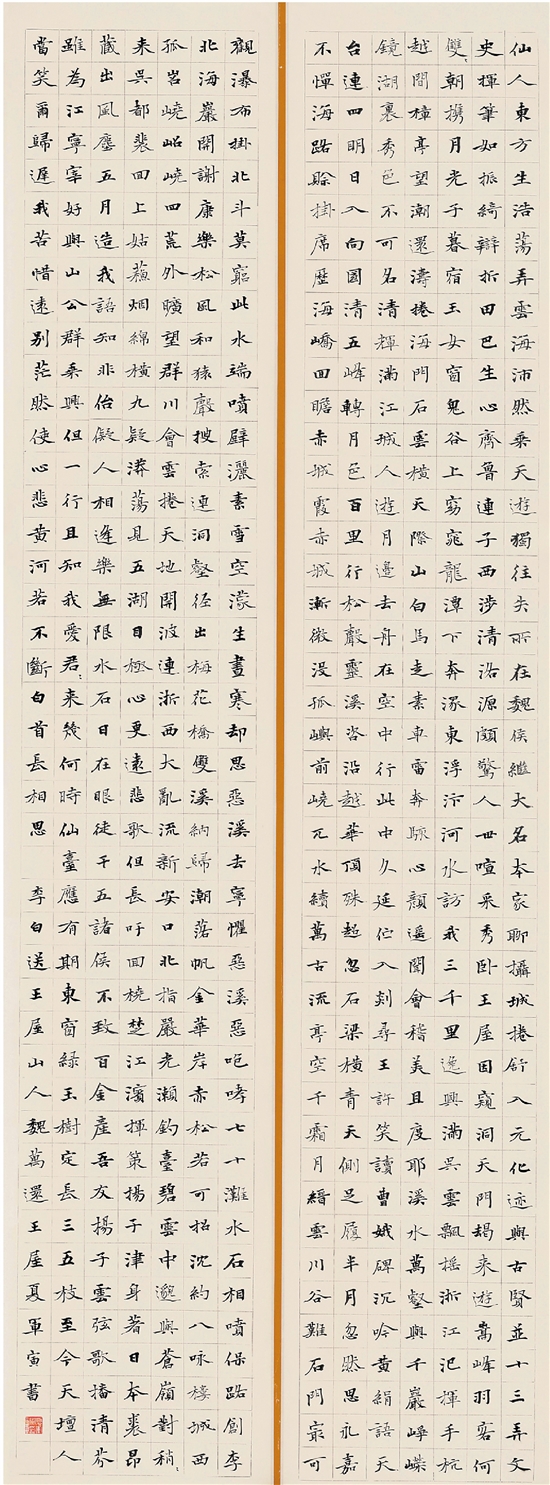 仙人東方生浩蕩弄雲海沛然乘天遊獨往失所在魏侯繼大名本家聊攝城捲舒入元化迹與古賢並十三弄文
史揮筆如振綺辯折田巴生心齊魯連子西涉清洛源頗驚人世喧采秀臥王屋因窺洞天門朅来遊嵩峰羽客何
雙朝攜月光子暮宿玉女窗鬼谷上窈窕龍潭下奔潈東浮汴河水訪我三千里逸興滿吳雲飄搖浙江汜揮手杭
越間樟亭望潮還濤捲海門石雲橫天際山白馬走素車雷奔駭心顏遙聞會稽美且度耶溪水萬壑與千巖崢嶸
鏡湖裏秀色不可名清輝滿江城人遊月邊去舟在空中行此中久延佇入剡尋王許笑讀曹娥碑沉吟黃絹語天
台連四明日入向國清五峰轉月色百里行松聲靈溪咨沿越華頂殊超忽石梁橫青天側足履半月忽然思永嘉
不憚海路賒掛席歷海嶠回瞻赤城霞赤城漸微沒孤嶼前嶢兀水續萬古流亭空千霜月縉雲川谷難石門最可
觀瀑布掛北斗莫窮此水端噴壁灑素雪空濛生晝寒却思惡溪去寧懼惡溪惡咆哮七十灘水石相噴保路創李
北海巖開謝康樂松風和猿聲搜索連洞壑徑出梅花橋雙溪納歸潮落帆金華岸赤松若可招沈約八咏樓城西
孤岧嶢岧嶢四荒外曠望群川會雲捲天地開波連浙西大亂流新安口北指嚴光瀨釣臺碧雲中邈與蒼嶺對稍
来吳都裴回上姑蘇烟綿橫九疑漭蕩見五湖目極心更遠悲歌但長吁回橈楚江濱揮策揚子津身著日本裘昂
藏出風塵五月造我語知非佁儗人相逢樂無限水石日在眼徒干五諸侯不致百金產吾友揚子雲弦歌播清芬
雖為江寧宰好與山公群乘興但一行且知我愛君来幾何時仙臺應有期東窗綠玉樹定長三五枝至今天壇人
當笑爾歸遲我苦惜遠別茫然使心悲黃河若不斷白首長相思 李白送王屋山人魏萬還王屋夏軍寅書